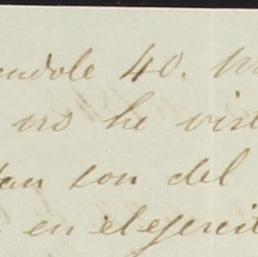 endole 40.
no he vist
tan son del
en el ejercit